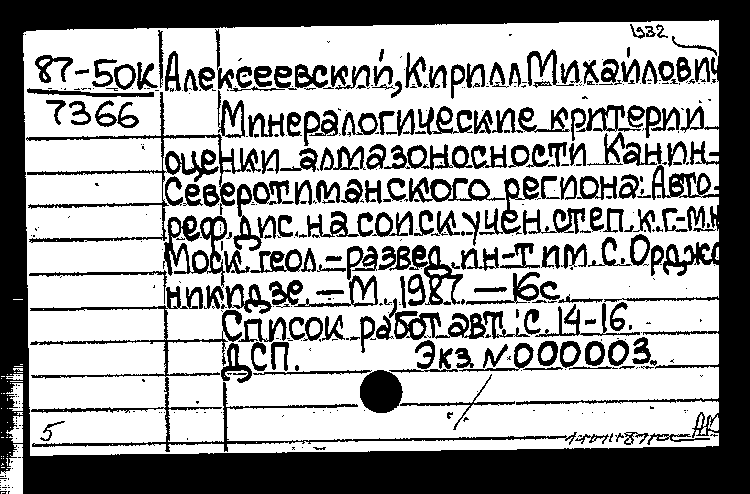 1932
87-50К Алексеевский, Кирилл Михайлович
7366 Минералогические критерии
оценки алмазоносности Канин-
Северотиманского региона: Авто-
реф. дис. на соиск. учен. степ. к.г.-м.н
Моск. геол.-развед. ин-т им. С. Орджо
никидзе. — М., 1987. — 16с.
Список работ авт.: с. 14-16.
ДСП. Экз. N 000003.
5 АК